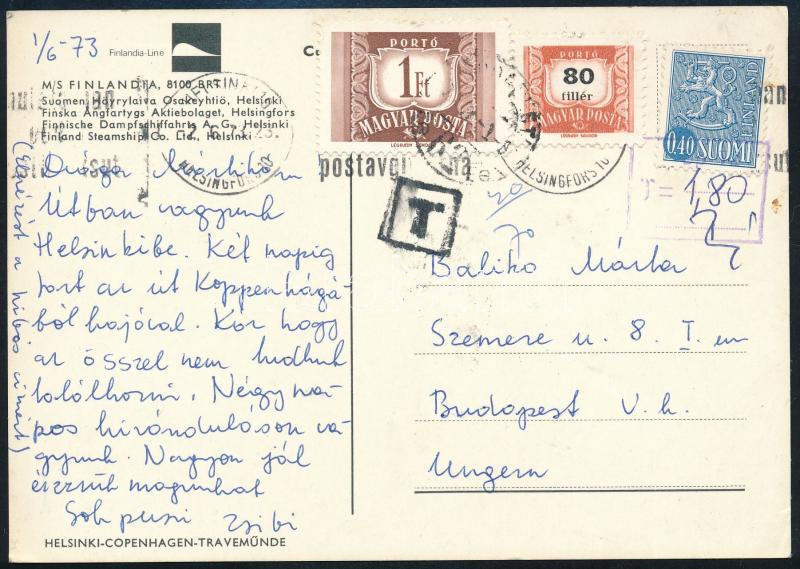 1/6-73
Finlandia-Line
M/S FINLANDIA, 8100 BRT
Suomen Höyrylaiva Osakeyhtiö, Helsinki
Finska Ångfartygs Aktiebolaget, Helsingfors
Finnische Dampfschiffahrts A. G., Helsinki
Finland Steamship Co. Ltd, Helsinki
Drága Mártikám
Útban vagyunk
Helsinkibe. Két napig
tart az út Koppenhágá-
ból hajóval. Kár hogy
az ősszel nem tudtunk
találkozni. Négy na-
pos kiránduláson va-
gyunk. Nagyon jól
érezzük magunkat
Sok puszi Zsibi
(Elnézést a hibás címért)
HELSINKI-COPENHAGEN-TRAVEMÜNDE
PORTÓ
1Ft
MAGYAR POSTA
LÉGRÁDY SÁNDOR
PORTÓ
80
fillér
MAGYAR POSTA
LÉGRÁDY SÁNDOR
FINLAND
0,40 SUOMI
HELSINGFORS 10
HELSINGFORS 10
T
T = 1,80
Baliko Márta
Szemere u. 8. I. em
Budapest V. k.
Ungern